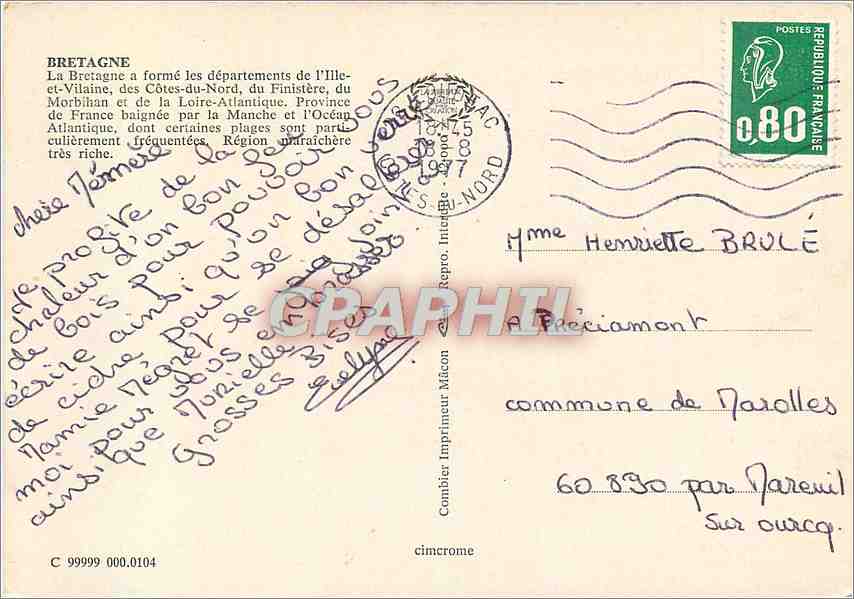 BRETAGNE
La Bretagne a formé les départements de l'Ille-
et-Vilaine, des Côtes-du-Nord, du Finistère, du
Morbihan et de la Loire-Atlantique. Province
de France baignée par la Manche et l'Océan
Atlantique, dont certaines plages sont parti-
culièrement fréquentées. Région maraîchère
très riche.
chère Mémère
je profite de la
chaleur d'un bon feu
de bois pour pouvoir vous
écrire ainsi qu'un bon verre
de cidre pour se désaltérer
Mamie Mégret se joint
moi pour vous embrasser
ainsi que Murielle
grosses Bises
Evelyne
C 99999 000.0104
cimcrome
Combier Imprimeur Mâcon - Repro. Interdite -
18H45
18-8
1977
CÔTES-DU-NORD
POSTES
REPUBLIQUE FRANÇAISE
0,80
Mme Henriette BRULÉ
A Préciamont
commune de Marolles
60 890 par Mareuil
sur ourcq.
CPAPHIL